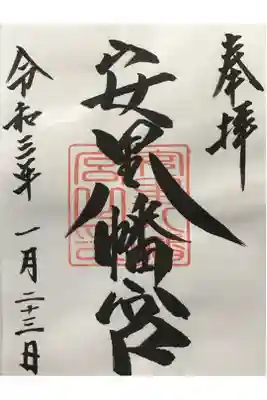 奉拝
安里八幡宮
令和三年 一月二十三日